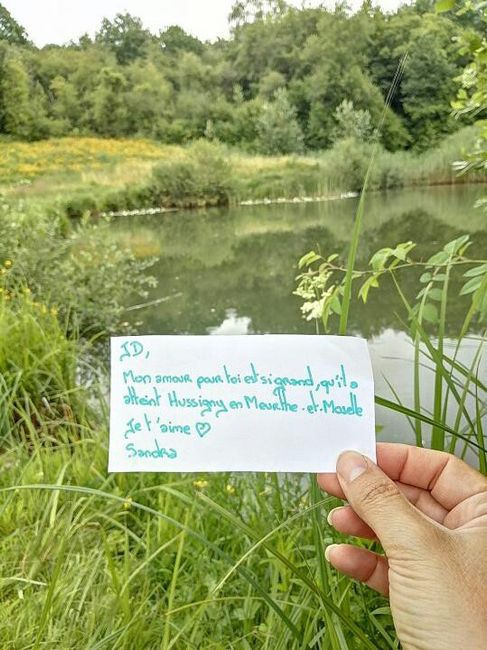 JD,
Mon amour pour toi et si grand, qu'il a
atteint Hussigny en Meurthe-et-Moselle
Je t'aime ♡
Sandra